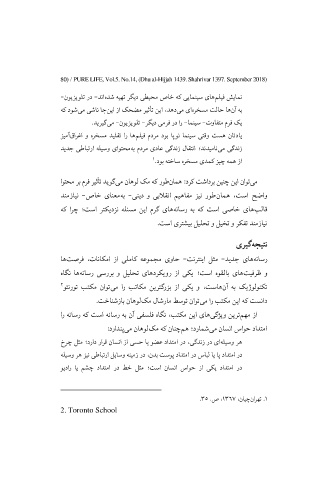 80) / PURE LIFE, Vol.5. No.14, (Dhu al-Hijjah 1439. Shahrivar 1397. September 2018)
نمایش فیلم‌های سینمایی که خاص محیطی دیگر تهیه شده‌اند- در تلویزیون-
به آن‌ها حالت مسخره‌ای می‌دهد، این تأثیر مضحک از این‌جا ناشی می‌شود که
یک فرم متفاوت- سینما- را در فرمی دیگر- تلویزیون- می‌گیرید.
یادتان هست وقتی سینما نوپا بود مردم فیلم‌ها را تقلید مسخره و اغراق‌آمیز
زندگی می‌نامیدند؛ انتقال زندگی عادی مردم به‌محتوای وسیله ارتباطی جدید
از همه چیز کمدی مسخره ساخته بود.¹
می‌توان این چنین برداشت کرد: همان‌طور که مک لوهان می‌گوید تأثیر فرم بر محتوا
واضح است، همان‌طور نیز مفاهیم انقلابی و دینی- به‌معنای خاص- نیازمند
قالب‌های خاصی است که به رسانه‌های گرم این مسئله نزدیکتر است؛ چرا که
نیازمند تفکر و تخیل و تحلیل بیشتری است.
نتیجه‌گیری
رسانه‌های جدید- مثل اینترنت- حاوی مجموعه کاملی از امکانات، فرصت‌ها
و ظرفیت‌های بالقوه است؛ یکی از رویکردهای تحلیل و بررسی رسانه‌ها نگاه
تکنولوژیک به آن‌هاست. و یکی از بزرگترین مکاتب را می‌توان مکتب تورنتو²
دانست که این مکتب را می‌توان توسط مارشال مک‌لوهان بازشناخت.
از مهم‌ترین ویژگی‌های این مکتب، نگاه فلسفی آن به رسانه است که رسانه را
امتداد حواس انسان می‌شمارد؛ هم‌چنان که مک‌لوهان می‌پندارد:
هر وسیله‌ای در زندگی، در امتداد عضو یا حسی از انسان قرار دارد؛ مثل چرخ
در امتداد پا یا لباس در امتداد پوست بدن، در زمینه وسایل ارتباطی نیز هر وسیله
در امتداد یکی از حواس انسان است؛ مثل خط در امتداد چشم یا رادیو
۱. تهرانچیان، ۱۳۶۷، ص. ۳۵.
2. Toronto School